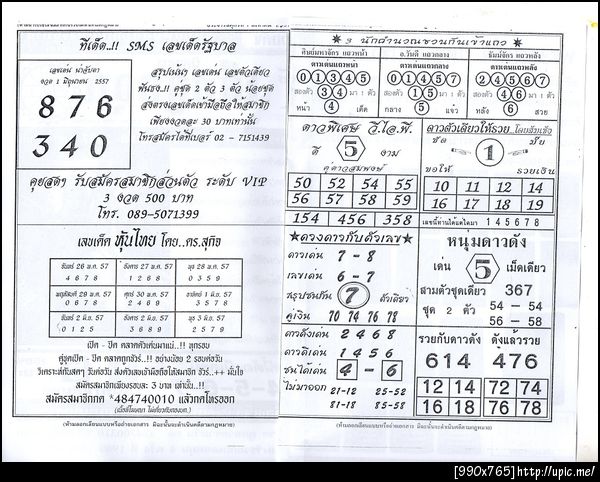 ทีเด็ด..!! SMS เลขเด็ดรัฐบาล
เลขเด่น น่าจับตา
งวด 1 มิถุนายน 2557
876
340
สรุปเน้นๆ เลขเด่น เลขตัวเดียว
พันธง..!! คู่ชุด 2 ตัว 3 ตัว น้อยชุด
ส่งตรงเลขเด็ดเข้ามือถือให้สมาชิก
เพียงงวดละ 30 บาทเท่านั้น
โทรสมัครได้ที่เบอร์ 02 - 7151439
คุยสดๆ รับสมัครสมาชิกส่วนตัว ระดับ VIP
3 งวด 500 บาท
โทร. 089-5071399
เลขเด็ด หุ้นไทย โดย..ดร.สุกิจ
จันทร์ 26 พ.ค. 57 อังคาร 27 พ.ค. 57 พุธ 28 พ.ค. 57
4 6 7 8 1 2 6 8 0 3 5 9
พฤหัสดี 29 พ.ค. 57 ศุกร์ 30 พ.ค. 57 อาทิตย์ 1 มิ.ย. 57
0 3 7 8 2 4 6 9 3 5 7 8
จันทร์ 2 มิ.ย. 57 จันทร์ 2 มิ.ย. 57 พุธ 3 มิ.ย. 57
0 1 2 5 2 6 8 9 3 5 7 9
เปิด - ปิด ตลาดหุ้นเด่นมาแน่..!! ทุกรอบ
คู่ชุดเปิด - ปิด ตลาดถูกชัวร์..!! อย่างน้อย 2 รอบต่อวัน
วิเคราะห์กันสดๆ วันต่อวัน ส่งตัวเลขเข้ามือถือให้สมาชิก ชัวร์..++ มั่นใจ
สมัครสมาชิกเพียงรอบละ 3 บาท เท่านั้น..!!
สมัครสมาชิกกด *484740010 แล้วกดโทรออก
(ห้ามลอกเลียนแบบหรือถ่ายเอกสาร มิฉะนั้นจะดำเนินคดีตามกฎหมาย)
3 นักคำนวณชวนกันเข้าแถว
ศิษย์มหาจักร แถวหน้า อ.วันดี แถวกลาง ธัมม์จักร แถวหลัง
ดาวเด่นแถวหน้า ดาวเด่นแถวกลาง ดาวเด่นแถวหลัง
0 1 3 4 5 0 1 4 5 7 2 4 6 7 8
สองตัว 3 4 มา 1 ตัว สองตัว 1 5 มา 1 ตัว สองตัว 4 6 มา 1 ตัว
หน้า 4 เด็ด กลาง 5 แจ๋ว หลัง 6 สวย
ดาวพิเศษ วี.ไอ.พี.
ดี 5 งาม
คู่ดาวสมพงษ์
50 52 54 55
56 57 58 59
154 456 358
ดาวตัวเดียวให้รวย
ชัด 1 ชัย
ขอให้ รวยเงิน
10 11 12 14
16 17 18 19
145678
ดวงดาวกับตัวเลข
ดาวเด่น 7 - 8
เลขเด่น 6 - 7
สรุปชนกัน 7 ตัวเดียว
คู่เงิน 70 74 76 78
หนุ่มดาวดัง
เด่น 5 เม็ดเดียว
สามตัวชุดเดียว 367
ชุด 2 ตัว 54 - 54
56 - 58
ดาวดังเด่น 2 4 6 8
ดาวดีเด่น 1 4 5 6
ชนได้เด่น 4 - 6
ไม่มาออก 21-12 25-52
81-18 85-58
รวยกับดาวดัง ดังแล้วรวย
614 476
12 14 72 74
16 18 76 78
(ห้ามลอกเลียนแบบหรือถ่ายเอกสาร มิฉะนั้นจะดำเนินคดีตามกฎหมาย)
[990x765]http://upic.me/